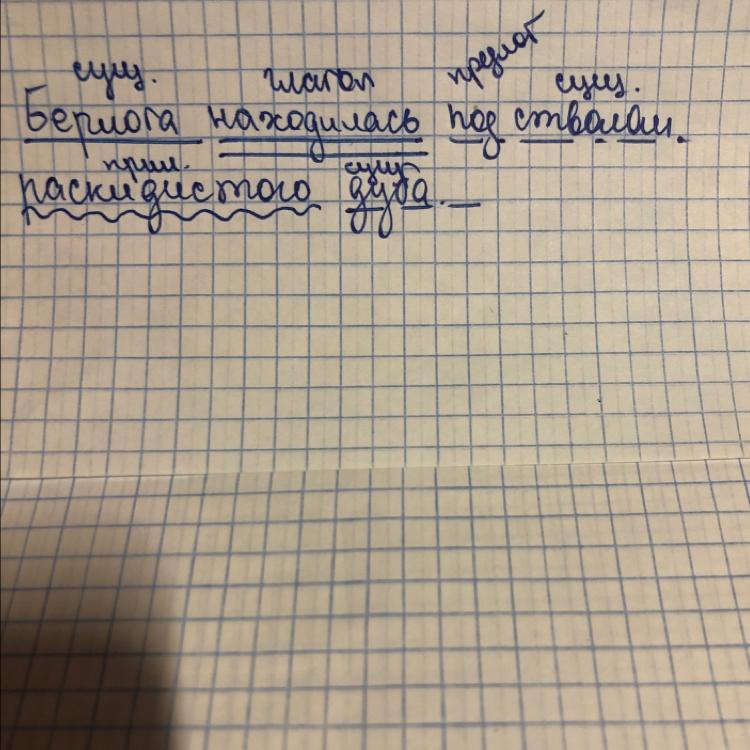 сущ. глагол предлог сущ.
Берлога находилась под стволом
прил. сущ.
раскидистого дуба.